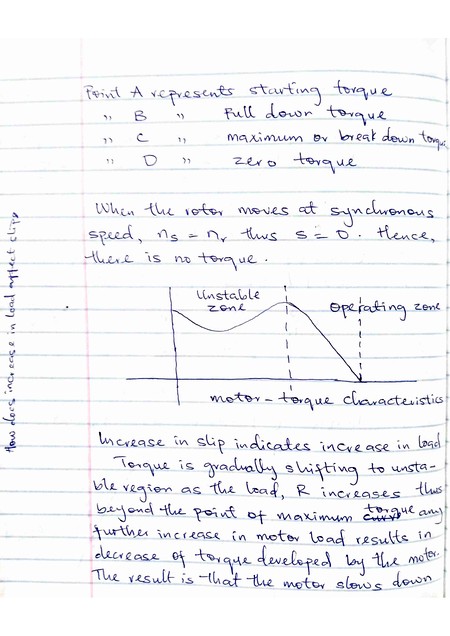 Point A represents starting torque
,, B ,, Full down torque
,, C ,, maximum or break down torque
,, D ,, zero torque
When the rotor moves at synchronous
speed, ns = nr thus s = 0. Hence,
there is no torque.
How does increase in load affect slips
Unstable
zone
Operating zone
motor - torque characteristics
Increase in slip indicates increase in load
Torque is gradually shifting to unsta-
ble region as the load, R increases thus
beyond the point of maximum torque any
further increase in motor load results in
decrease of torque developed by the motor.
The result is that the motor slows down